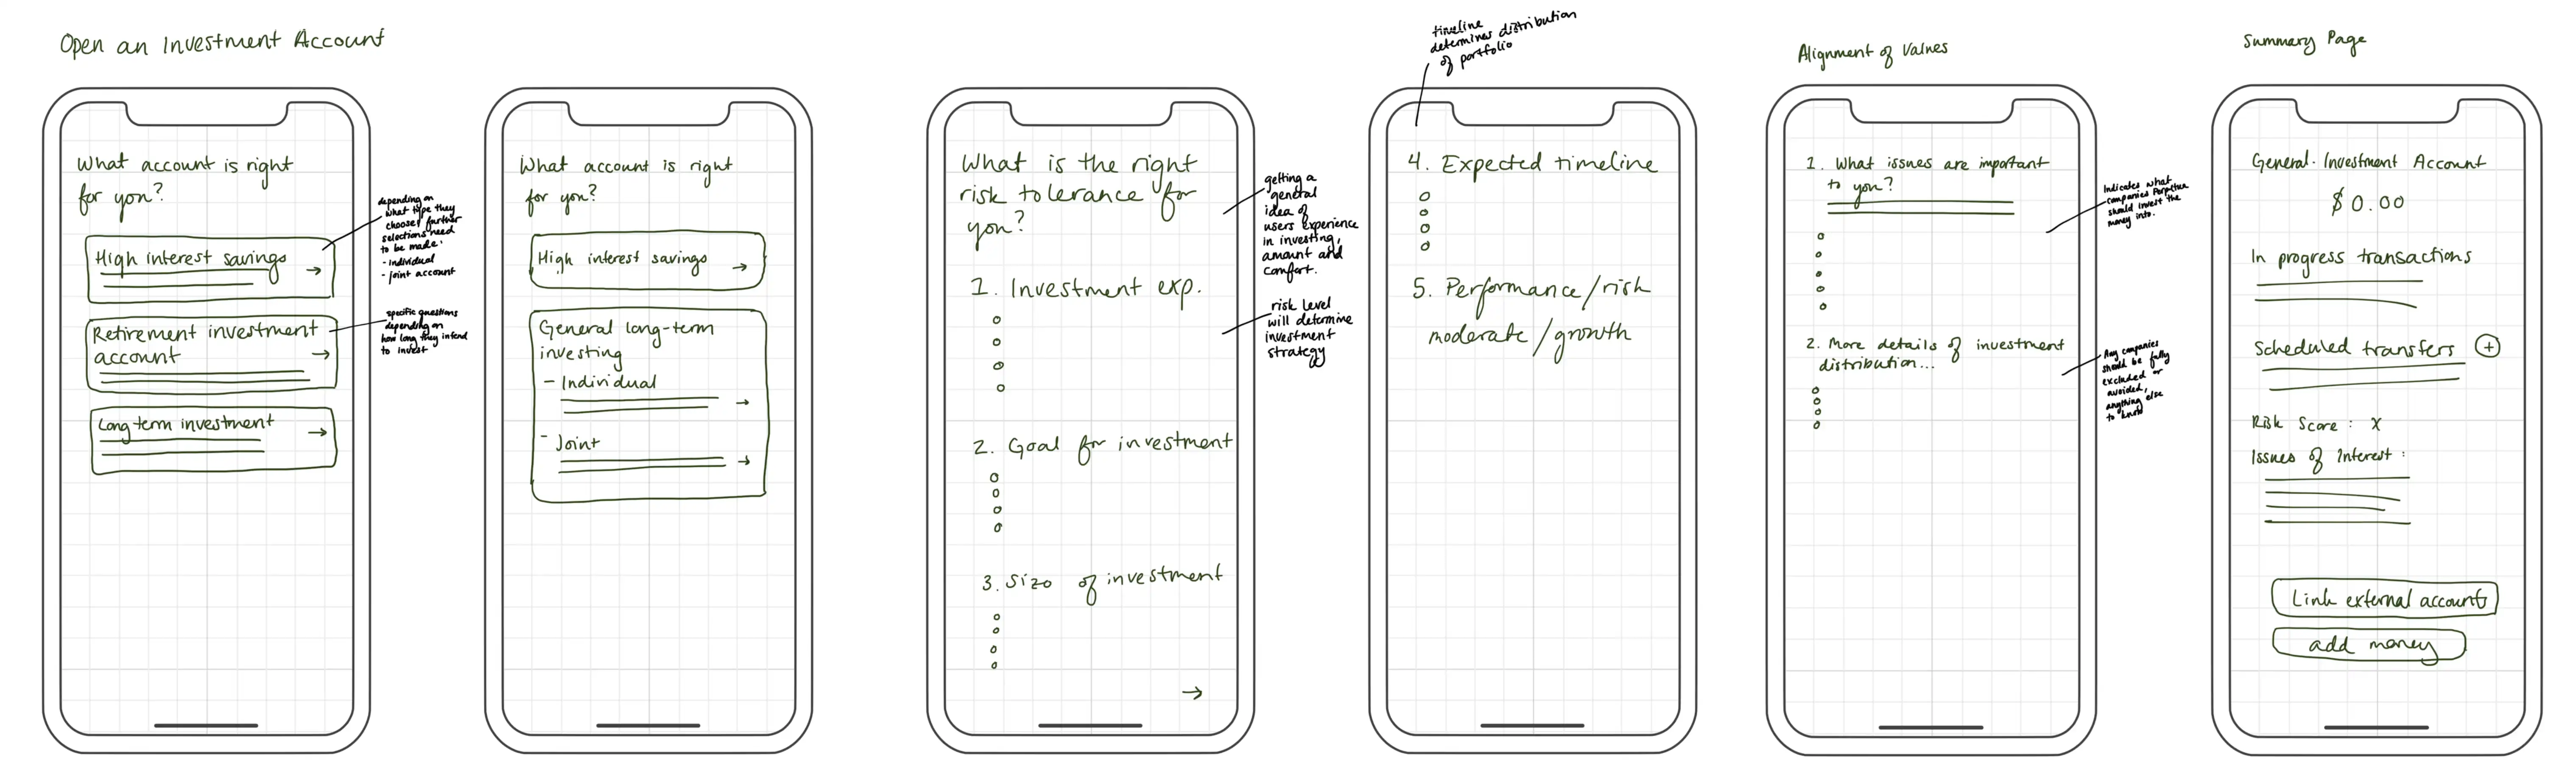 Open an Investment Account
What account is right
for you?
High interest savings
Retirement investment
account
Long term investment
depending on
what type they
choose further
selections need
to be made.
- Individual
- joint account
specific questions
depending on
how long they intend
to invest
What account is right
for you?
High interest savings
General long-term
investing
- Individual
- Joint
What is the right
risk tolerance for
you?
1. Investment exp.
2. Goal for investment
3. Size of investment
getting a
general
idea of
users experience
in investing,
amount and
comfort.
risk level
will determine
investment
strategy
timeline
determines distribution
of portfolio
4. Expected timeline
5. Performance/risk
moderate/growth
Alignment of Values
1. What issues are important
to you?
2. More details of investment
distribution...
Indicates what
companies Perpetua
should invest the
money into.
Any companies
should be fully
excluded or
avoided,
anything else
to know
Summary Page
General Investment Account
$0.00
In progress transactions
Scheduled transfers +
Risk Score: X
Issues of Interest:
Link external account
add money